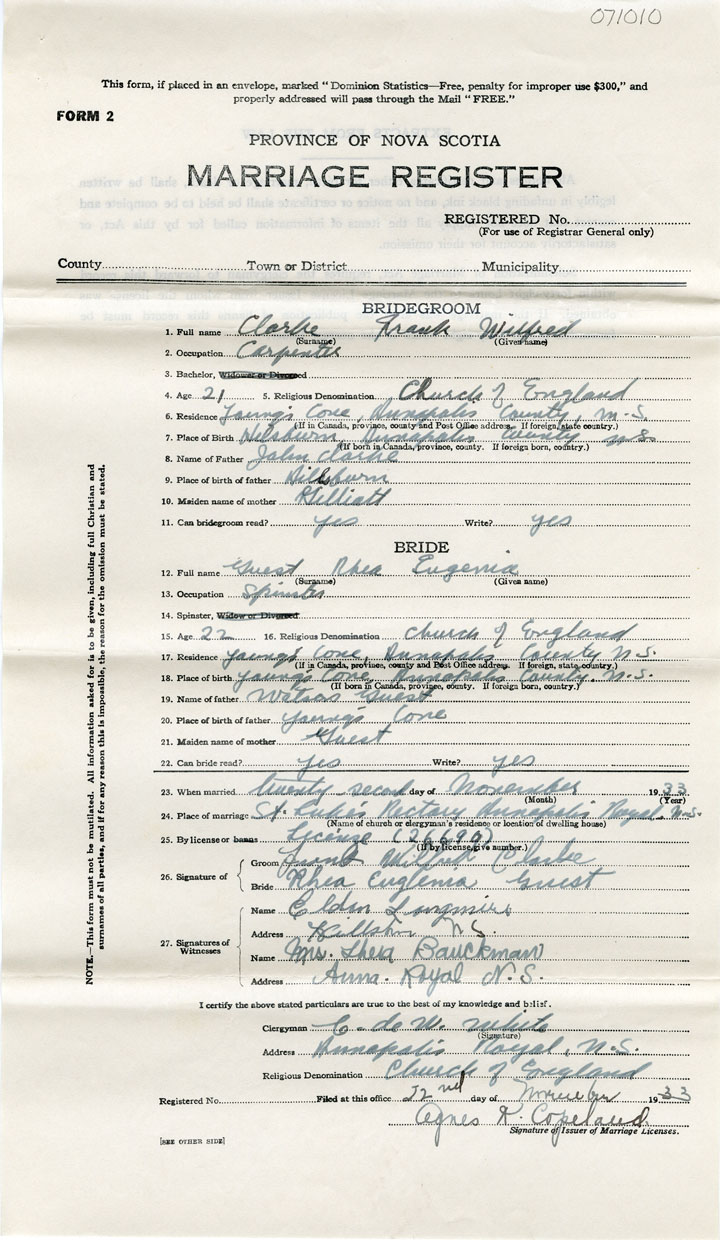 071010
This form, if placed in an envelope, marked "Dominion Statistics—Free, penalty for improper use $300," and
properly addressed will pass through the Mail "FREE."
FORM 2
PROVINCE OF NOVA SCOTIA
MARRIAGE REGISTER
REGISTERED No.
(For use of Registrar General only)
County Town or District Municipality
BRIDEGROOM
1. Full name Clarke Frank Wilfred
(Surname) (Given name)
2. Occupation Carpenter
3. Bachelor, Widower or Divorced
4. Age 21 5. Religious Denomination Church of England
6. Residence Young's Cove, Annapolis County, N.S.
(If in Canada, province, county and Post Office address. If foreign, state country.)
7. Place of Birth Hillsburn, Annapolis County N.S.
(If born in Canada, province, county. If foreign born, country.)
8. Name of Father John Clarke
9. Place of birth of father Hillsburn
10. Maiden name of mother Hilliatt
11. Can bridegroom read? yes Write? yes
BRIDE
12. Full name Guest Rhea Eugenia
(Surname) (Given name)
13. Occupation Spinster
14. Spinster, Widow or Divorced
15. Age 22 16. Religious Denomination Church of England
17. Residence Young's Cove, Annapolis County N.S.
(If in Canada, province, county and Post Office address. If foreign, state country.)
18. Place of birth Young's Cove, Annapolis County. N.S.
(If born in Canada, province, county. If foreign born, country.)
19. Name of father Watson Guest
20. Place of birth of father Young's Cove
21. Maiden name of mother Guest
22. Can bride read? yes Write? yes
23. When married twenty second day of November 1933
(Month) (Year)
24. Place of marriage St. Luke's Rectory Annapolis Royal, N.S.
(Name of church or clergyman's residence or location of dwelling house)
25. By license or banns License (26690)
(If by license, give number.)
26. Signature of
Groom Frank Wilfred Clarke
Bride Rhea Euglenia Guest
27. Signatures of Witnesses
Name Eldon Longmire
Address N.S.
Name Mrs. Bauckman
Address Anna. Royal N.S.
I certify the above stated particulars are true to the best of my knowledge and belief.
Clergyman C. de W. White
(Signature)
Address Annapolis Royal, N.S.
Religious Denomination Church of England
Registered No. Filed at this office 22nd day of November 1933
Agnes K. Copeland
Signature of Issuer of Marriage Licenses.
[SEE OTHER SIDE]
NOTE.—This form must not be mutilated. All information asked for is to be given, including full Christian and
surnames of all parties, and if for any reason this is impossible, the reason for the omission must be stated.